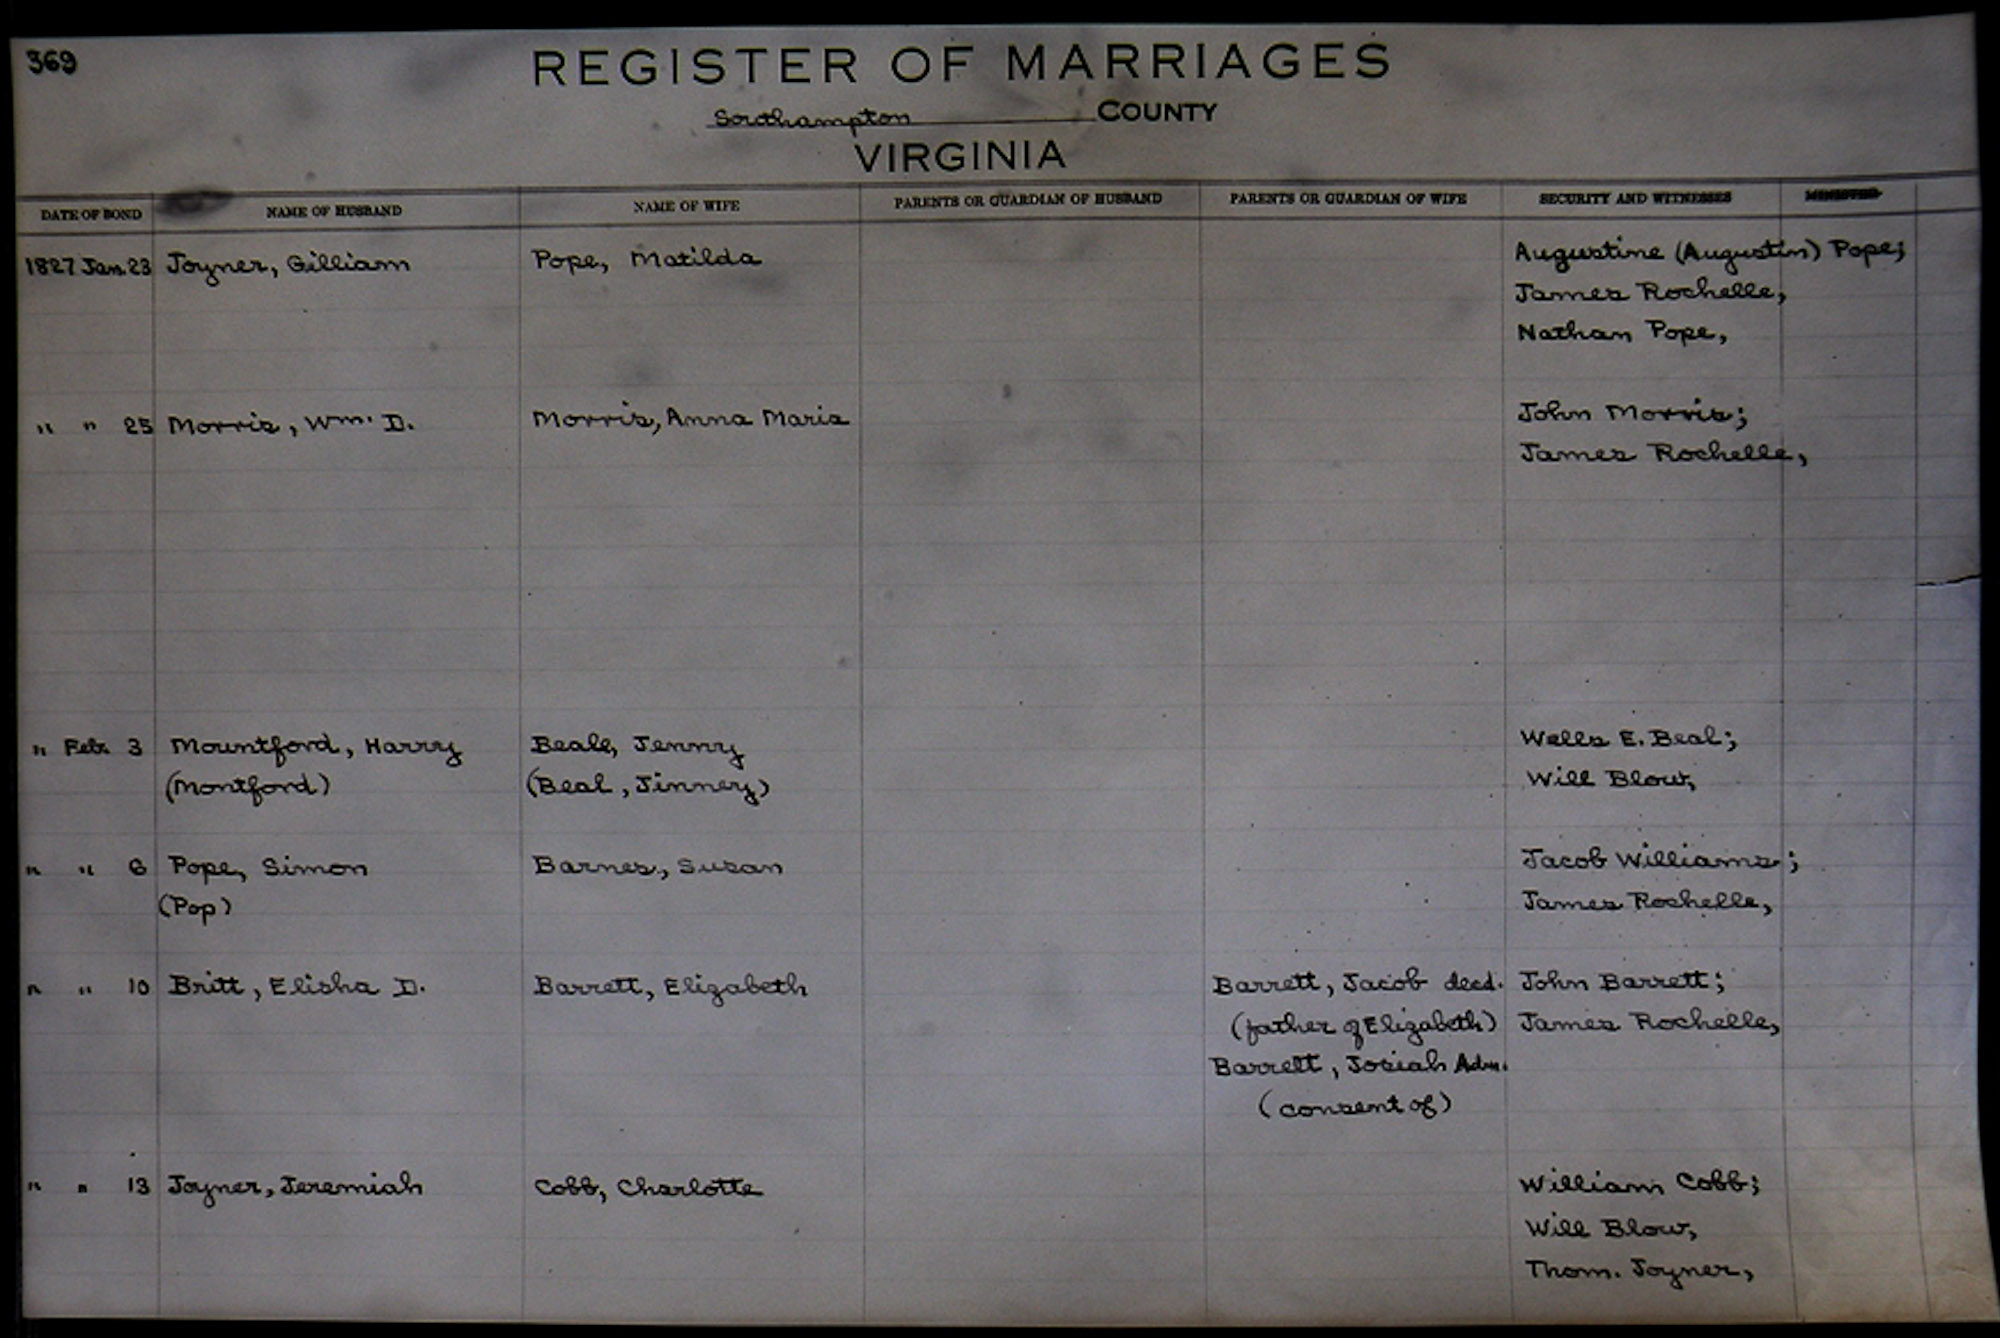 369
REGISTER OF MARRIAGES
Southampton COUNTY
VIRGINIA
DATE OF BOND NAME OF HUSBAND NAME OF WIFE PARENTS OR GUARDIAN OF HUSBAND PARENTS OR GUARDIAN OF WIFE SECURITY AND WITNESSES MINISTER
1827 Jan. 23 Joyner, Gilliam Pope, Matilda Augustine (Augustin) Pope;
James Rochelle,
Nathan Pope,
" " 25 Morris, Wm. D. Morris, Anna Maria John Morris;
James Rochelle,
" Feb. 3 Mountford, Harry Beale, Jenny Wells E. Beal;
(Montford) (Beal, Jinney) Will Blow,
" " 6 Pope, Simon Barnes, Susan Jacob Williams;
(Pop) James Rochelle,
" " 10 Britt, Elisha D. Barrett, Elizabeth Barrett, Jacob decd. John Barrett;
(father of Elizabeth) James Rochelle,
Barrett, Josiah Adm.
(consent of)
" " 13 Joyner, Jeremiah Cobb, Charlotte William Cobb;
Will Blow,
Thom. Joyner,